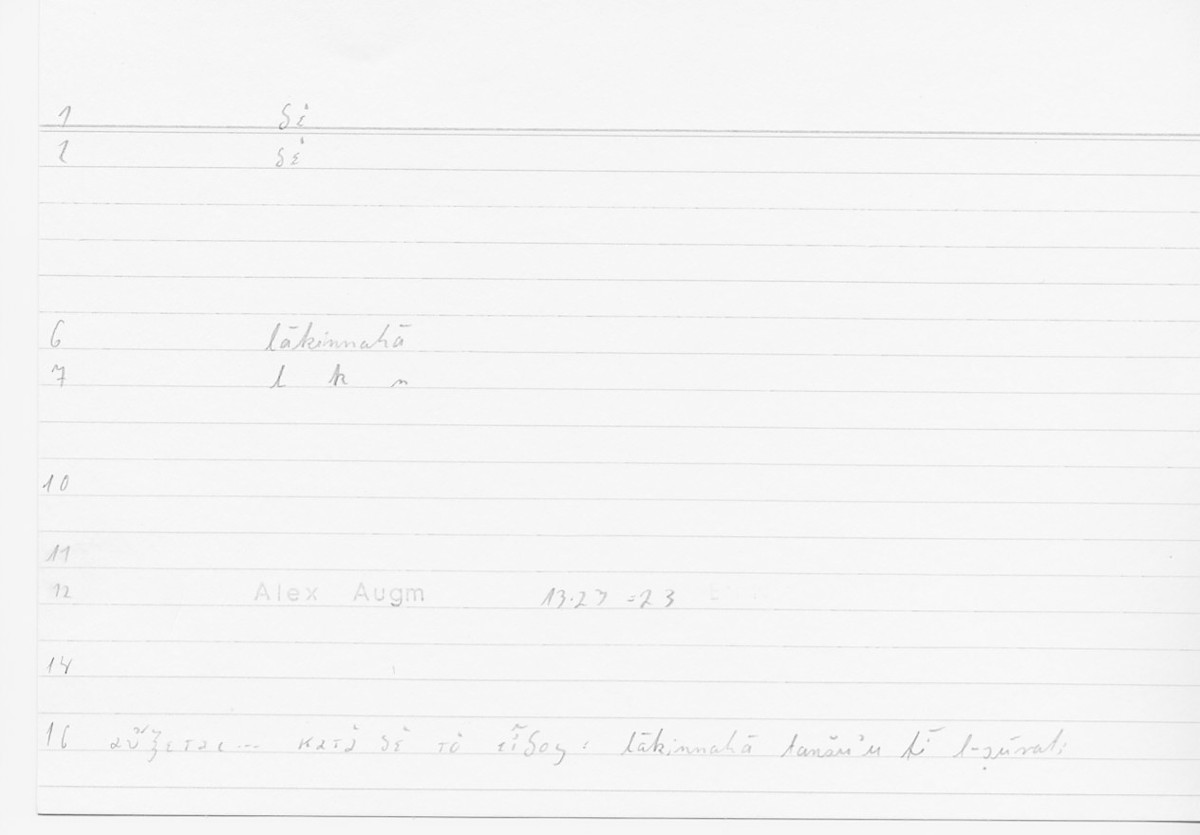 1 δέ
2 δέ
6 lākinnahā
7 l k n
10
11
12 Alex Augm 13.23 = 23
14
16 αὔξεται... κατὰ δὲ τὸ εἶδος: lākinnahā tanšuʾu fī l-ṣūrati